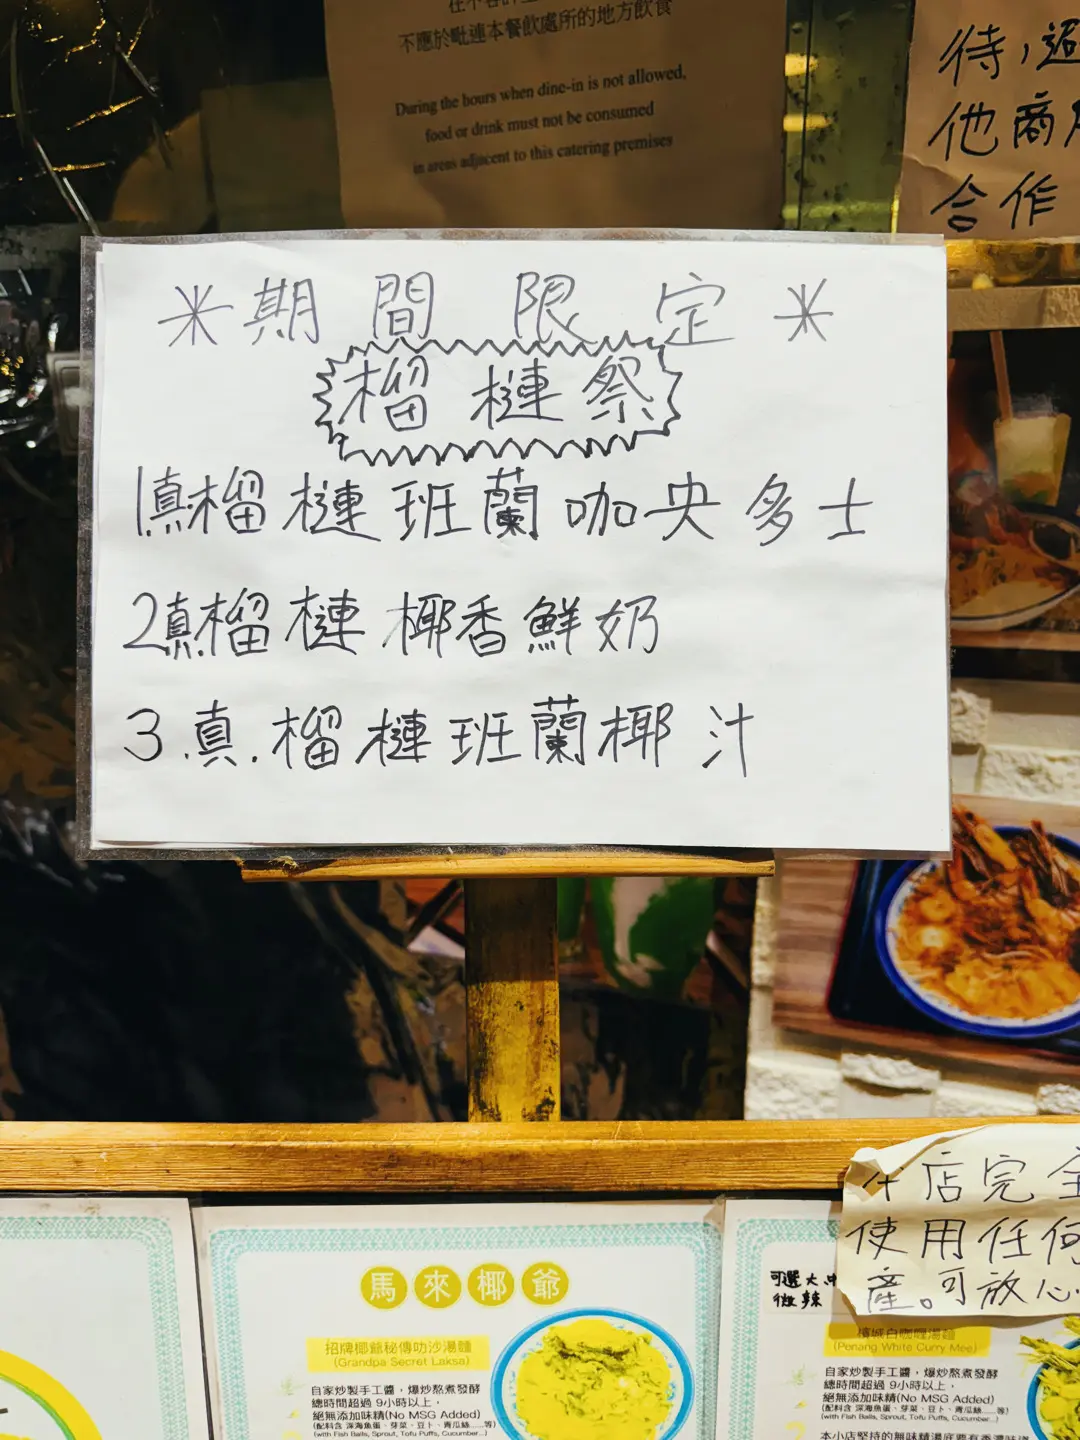 不應於毗連本餐飲處所的地方飲食
During the hours when dine-in is not allowed,
food or drink must not be consumed
in areas adjacent to this catering premises
待,
他商
合作
*期間限定*
榴槤祭
1.真.榴槤班蘭咖央多士
2.真.榴槤椰香鮮奶
3.真.榴槤班蘭椰汁
店完全
使用任何
產。可放心
馬來椰爺
招牌椰爺秘傳叻沙湯麵
(Grandpa Secret Laksa)
自家炒製手工醬,爆炒熬煮發酵
總時間超過 9小時以上,
絕無添加味精(No MSG Added)
(配料含 深海魚蛋、芽菜、豆卜、青瓜絲......等)
(with Fish Balls, Sprout, Tofu Puffs, Cucumber...)
可選大中
微辣
檳城白咖喱湯麵
(Penang White Curry Mee)
自家炒製手工醬,爆炒熬煮發酵
總時間超過 9小時以上,
絕無添加味精(No MSG Added)
(配料含 深海魚蛋、芽菜、豆卜、青瓜絲......等)
(with Fish Balls, Sprout, Tofu Puffs, Cucumber...)